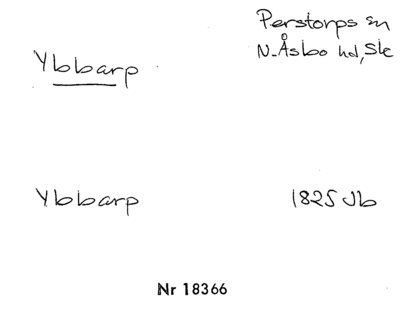 Perstorps sn
Ybbarp
N. Åsbo hd, Ske
Ybbarp
1825 Jb
Nr 18366